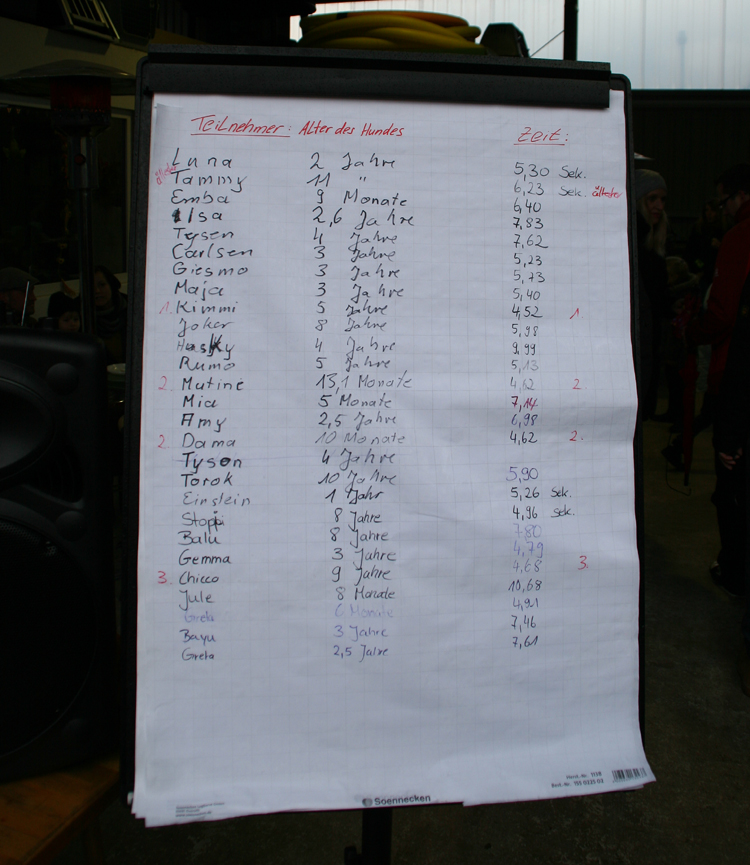 Teilnehmer: Alter des Hundes Zeit:
Luna 2 Jahre 5,30 Sek.
ältester Tammy 11 " 6,23 Sek. ältester
Emba 9 Monate 6,40
Ilsa 2,6 Jahre 7,83
Tysen 4 Jahre 7,62
Carlsen 3 Jahre 5,23
Giesmo 3 Jahre 5,73
Maja 3 Jahre 5,40
1. Kimmi 5 Jahre 4,52 1
Joker 8 Jahre 5,98
Husky 4 Jahre 9,99
Rumo 5 Jahre 5,13
2. Mutine 13,1 Monate 4,62 2.
Mia 5 Monate 7,14
Amy 2,5 Jahre 6,98
2. Dama 10 Monate 4,62 2.
Tyson 4 Jahre
Torok 10 Jahre 5,90
Einstein 1 Jahr 5,26 Sek.
Stoppi 8 Jahre 4,96 Sek.
Balu 8 Jahre 7,80
Gemma 3 Jahre 4,79
3. Chicco 9 Jahre 4,68 3.
Jule 8 Monate 10,68
Greta 6 Monate 4,91
Bayu 3 Jahre 7,46
Greta 2,5 Jahre 7,61
Soennecken